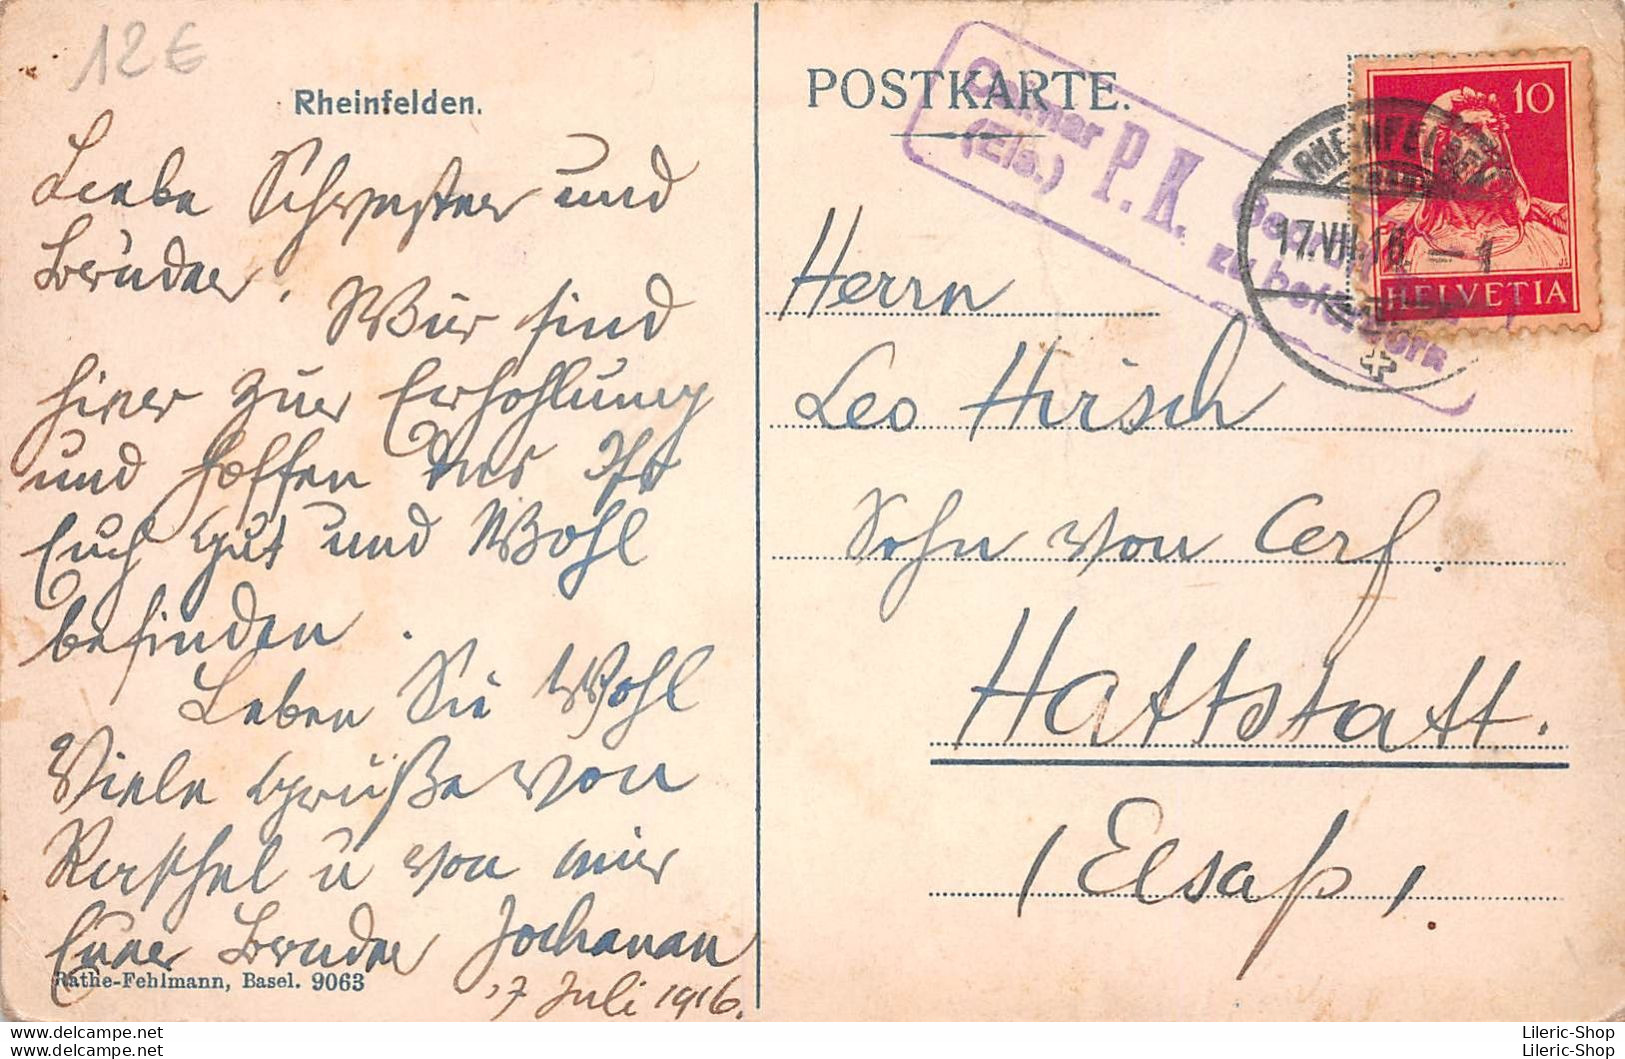 12€
Rheinfelden.
Liebe Schwester und
Bruder. Wir sind
hier zur Erhohlung
und hoffen das Ihr
Euch gut und Wohl
befinden.
Leben Sie Wohl
Viele Grüße von
Raschel u von mir
Euer Bruder Jochanan
17 Juli 1916.
Rathe-Fehlmann, Basel. 9063
POSTKARTE.
Colmar
(Els.)
P. K.
Geprüft
zu befördern
RHEINFELDEN
17.VII.16. – 1
10
HELVETIA
Herrn
Leo Hirsch
Sohn von Cerf.
Hattstatt.
(Elsaß)
Lileric-Shop
Lileric-Shop
Lileric-Shop
Lileric-Shop